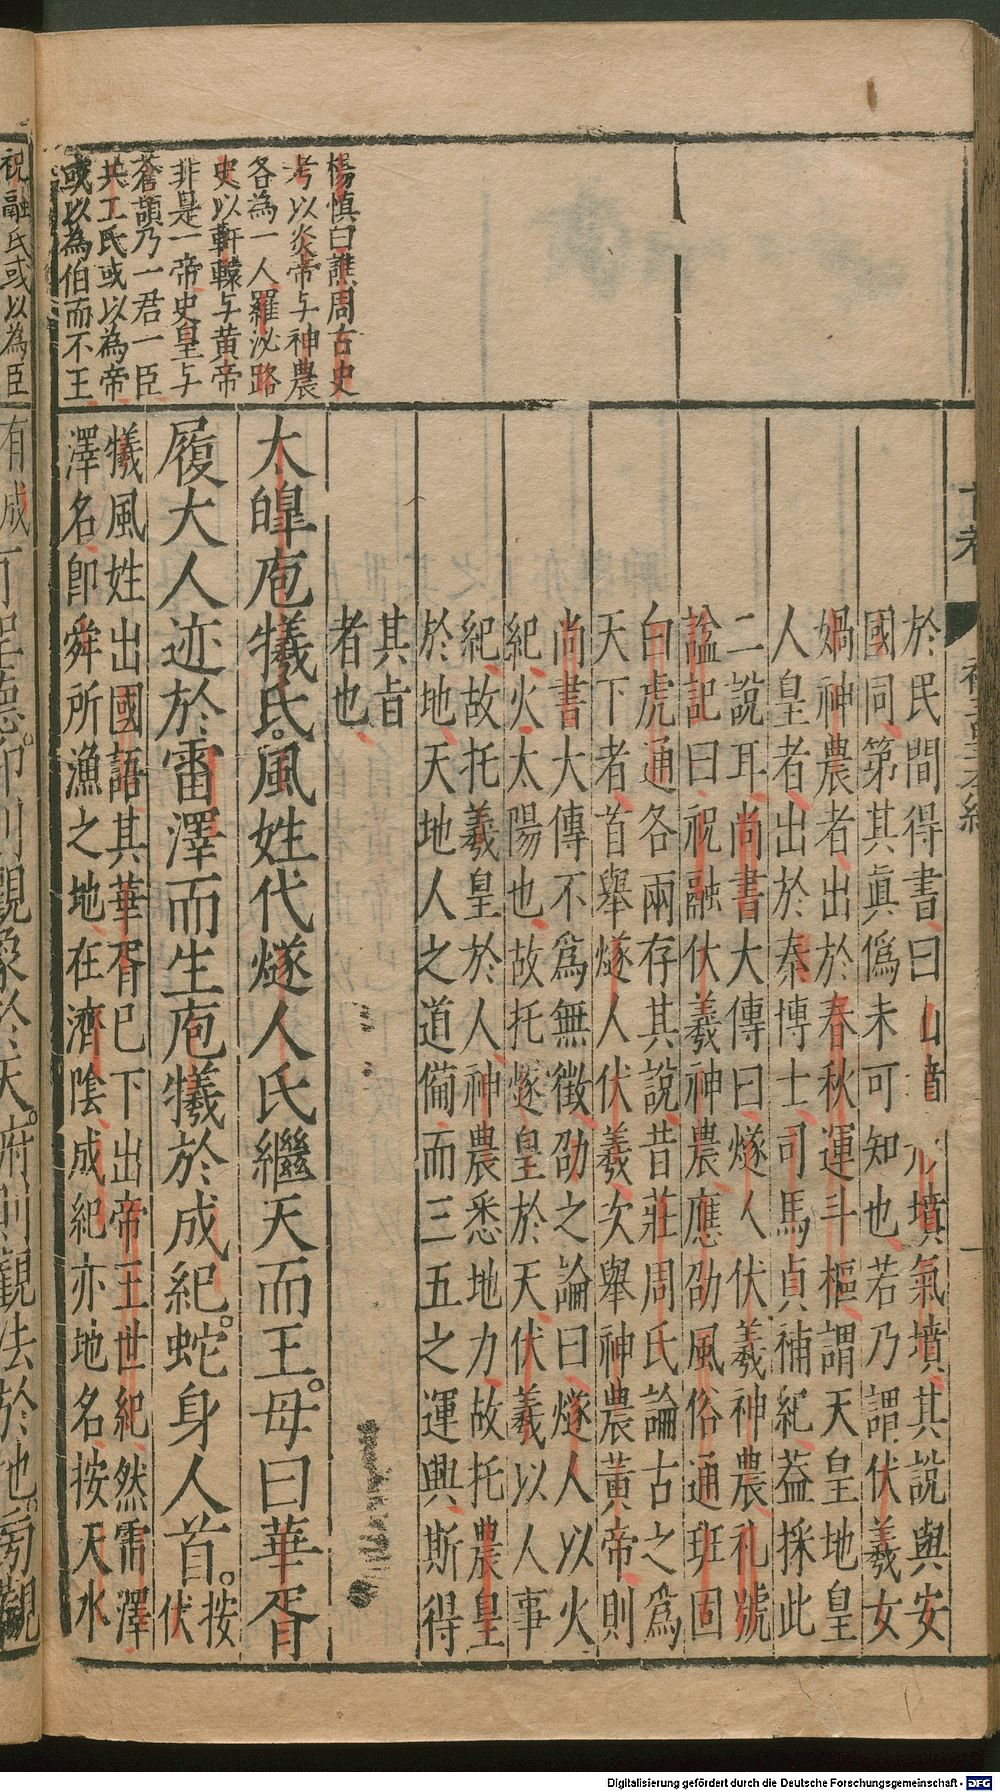 於民間得書曰山墳 墳氣墳其說與安
國同第其眞偽未可知也若乃謂伏羲女
媧神農者出於春秋運斗樞謂天皇地皇
人皇者出於秦博士司馬貞補紀葢採此
二說耳尚書大傳曰燧人伏羲神農礼號
謚記曰祝融伏羲神農應劭風俗通班固
白虎通各兩存其說昔莊周氏論古之爲
天下者首舉燧人伏羲次舉神農黃帝則
尚書大傳不爲無徵劭之論曰燧人以火
紀火太陽也故托燧皇於天伏羲以人事
紀故托羲皇於人神農悉地力故托農皇
於地天地人之道備而三五之運興斯得
其旨
者也
楊慎曰譙周古史
考以炎帝与神農
各為一人羅泌路
史以軒轅与黄帝
非是一帝史皇与
蒼頡乃一君一臣
共工氏或以為帝
或以為伯而不王
太皥庖犧氏風姓代燧人氏繼天而王母曰華胥
履大人迹於雷澤而生庖犧於成紀蛇身人首按
伏
犧風姓出國語其華胥已下出帝王世紀然雷澤
澤名即舜所漁之地在濟陰成紀亦地名按天水
祝融氏或以為臣
Digitalisierung gefördert durch die Deutsche Forschungsgemeinschaft - DFG